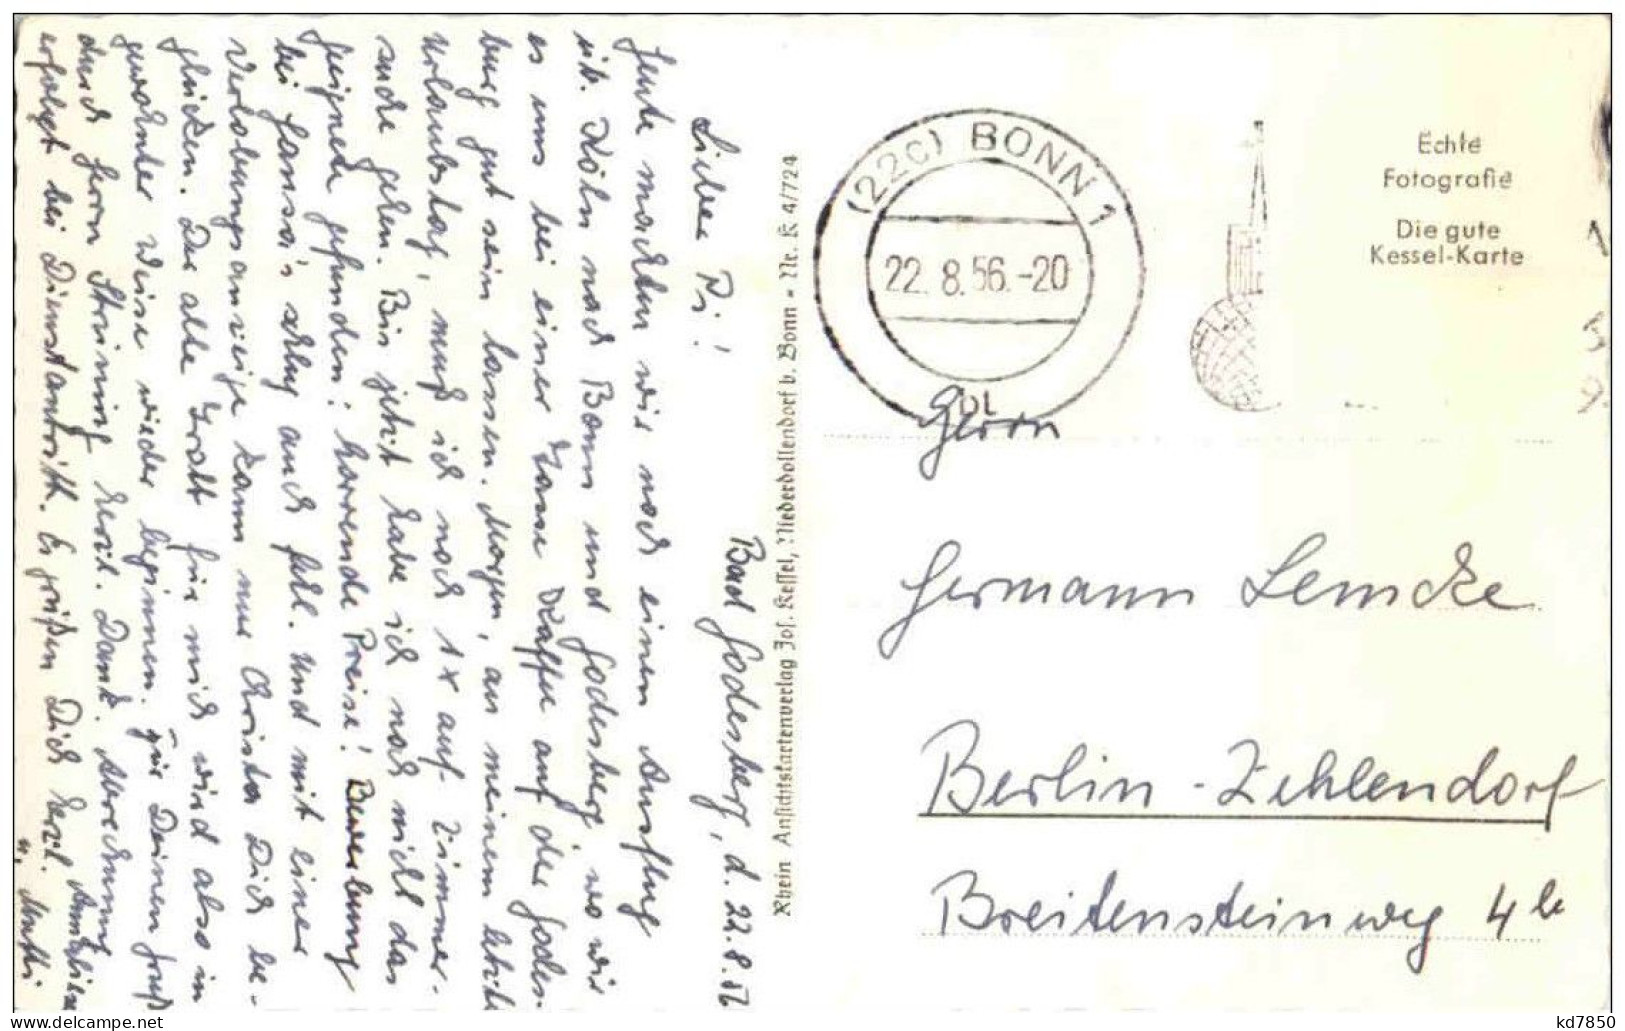 Bad Godesberg, d. 22.8.56
Lieber Pi!
Heute machten wir noch einen Ausflug
üb. Köln nach Bonn und Godesberg, wo wir
es uns bei einer Tasse Kaffee auf der Godes-
burg gut sein lassen. Morgen, an meinem letzten
Urlaubstag, muß ich noch 1x auf Zimmer-
suche gehen. Bis jetzt habe ich noch nicht das
Geeignete gefunden: horrende Preise! Bewerbung
bei Hansa's schlug auch fehl. Und mit einer
Verlobungsanzeige kann nur Christa Dich be-
glücken. Der alte Trott für mich wird also in
gewohnter Weise wieder beginnen. Für Deinen Gruß
durch Herrn herzl. Dank. Abrechnung
erfolgt bei Dienstantritt. Es grüßen Dich herzl. Anneliese
u. Mutti
Rhein Ansichtskartenverlag Jos. Kessel, Niederdollendorf b. Bonn - Nr. K 4/724
(22c) BONN 1
22.8.56.-20
bL
Echte
Fotografie
Die gute
Kessel-Karte
Herrn
Hermann Lemcke
Berlin-Zehlendorf
Breitensteinweg 4b
delcampe.net
kd7850